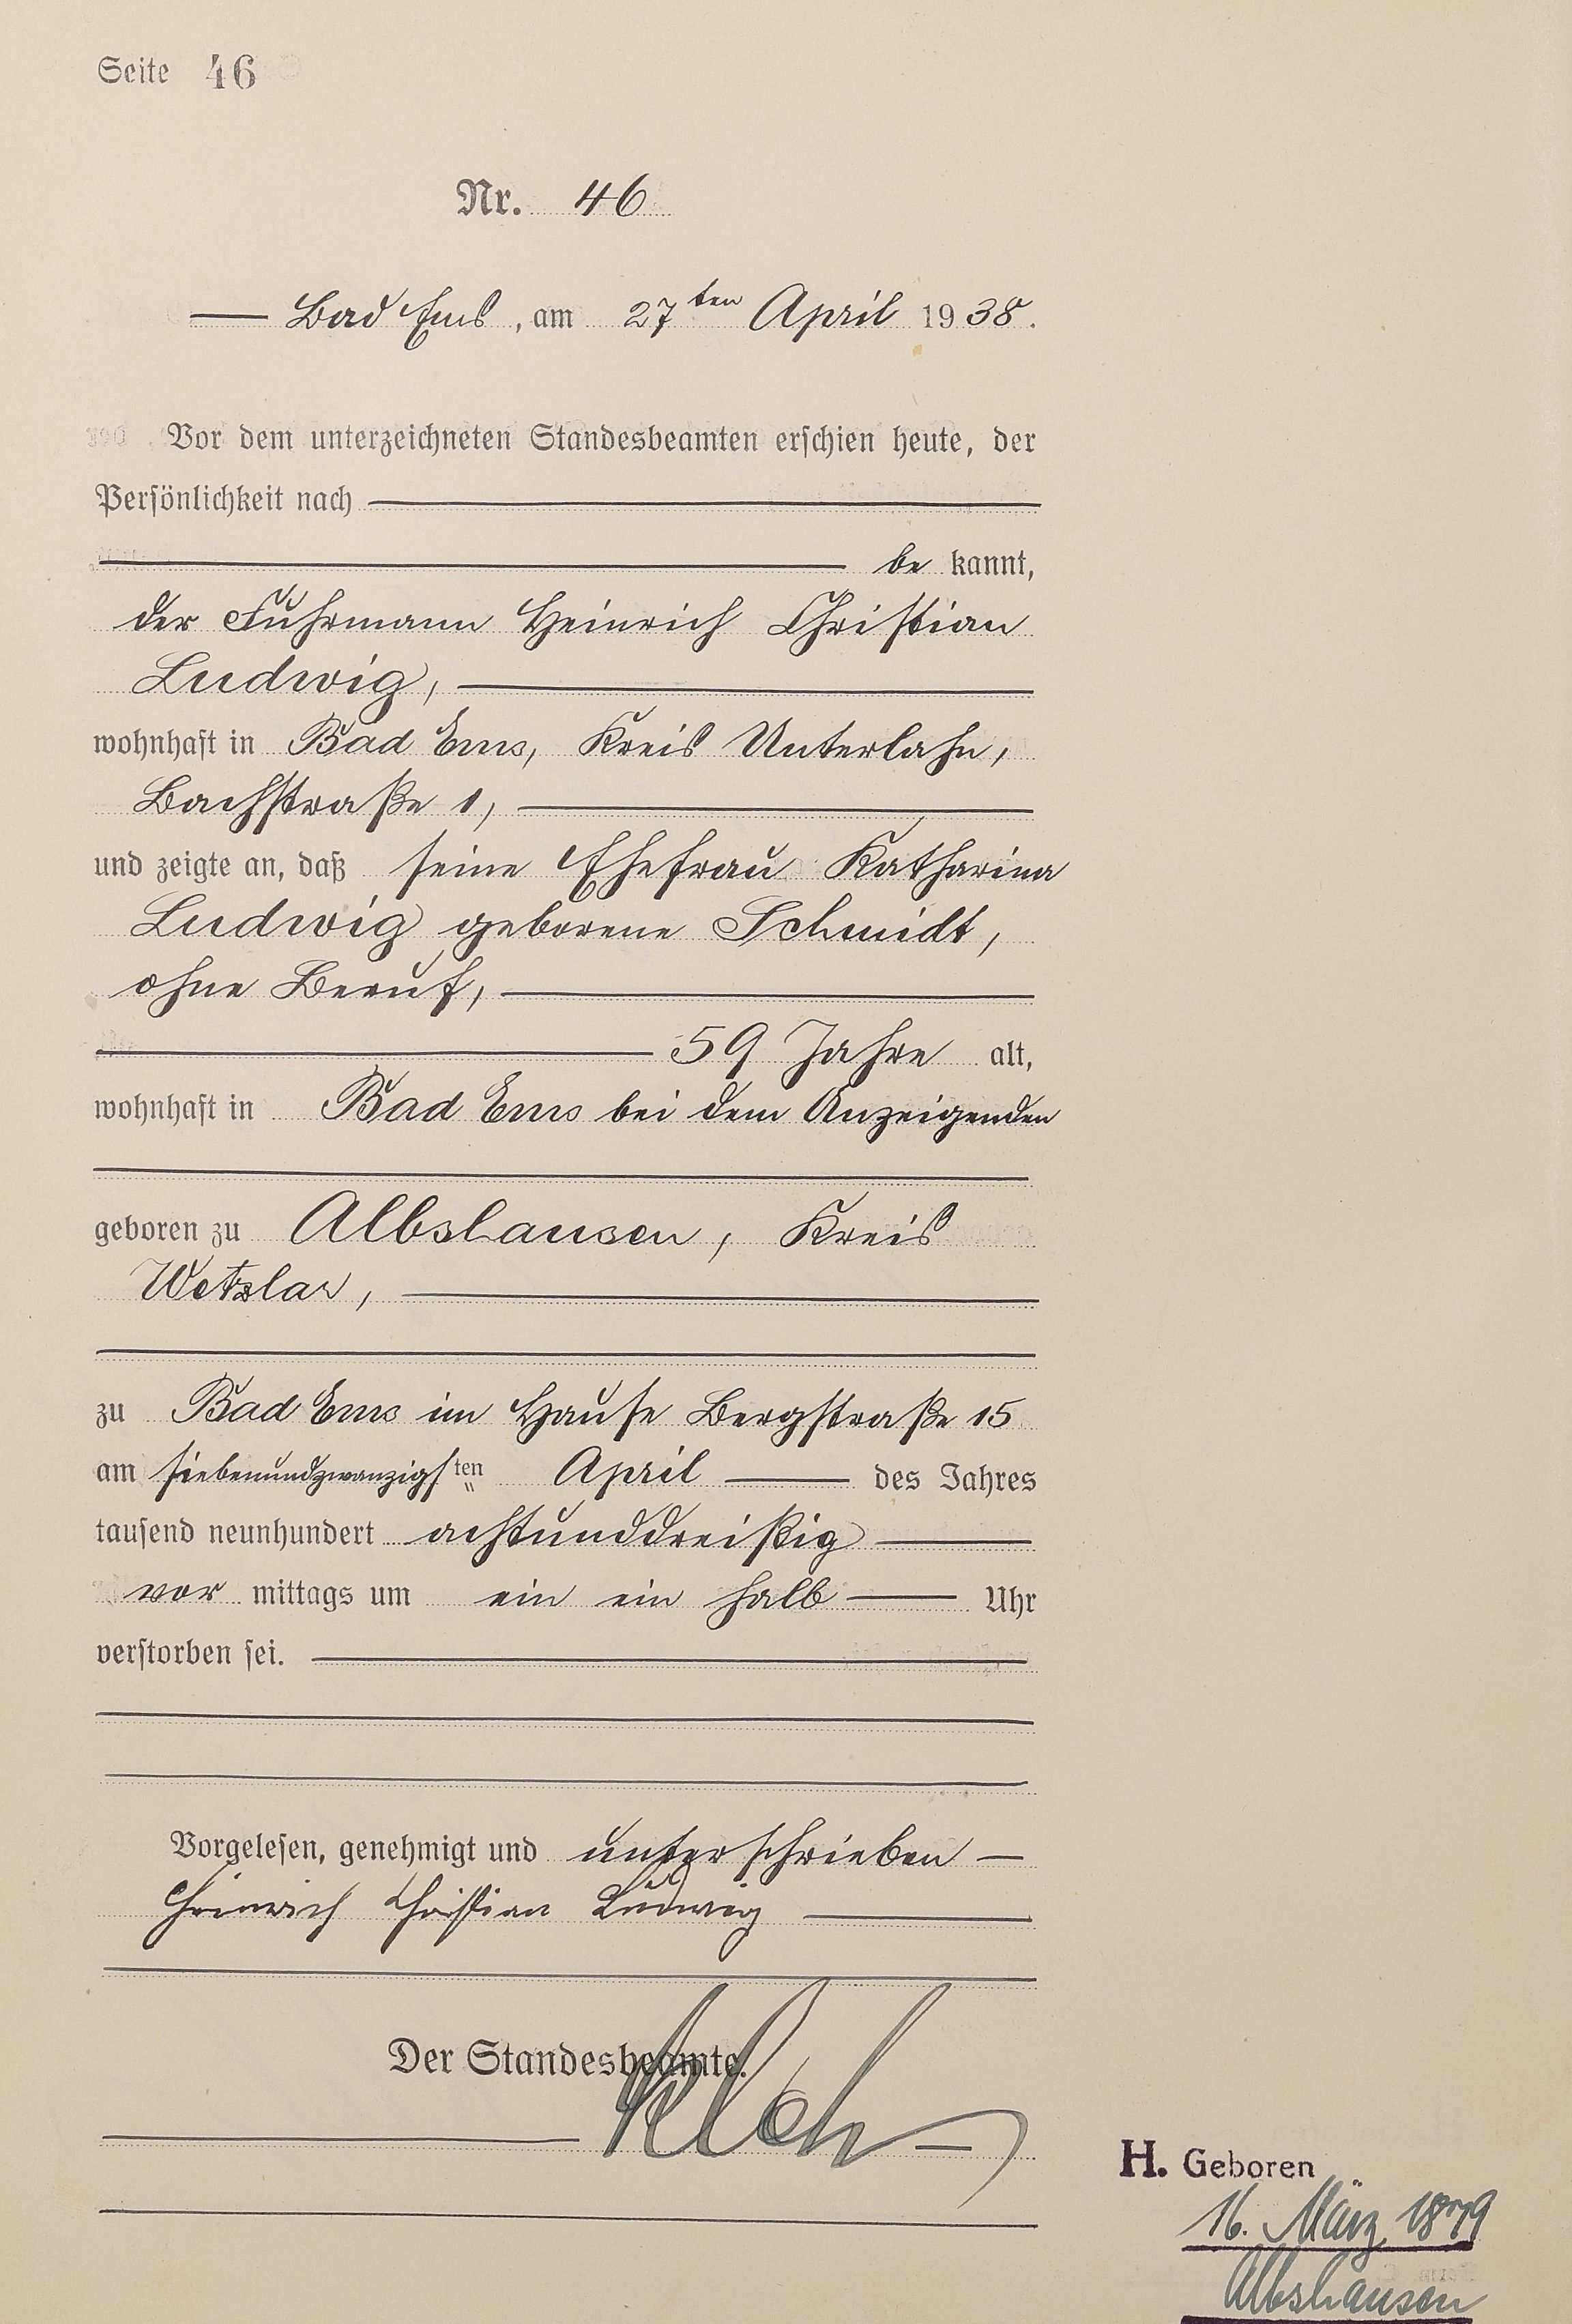 Seite 46
Nr. 46
Bad Ems, am 27ten April 1938.
Vor dem unterzeichneten Standesbeamten erschien heute, der
Persönlichkeit nach
be kannt,
der Fuhrmann Heinrich Christian
Ludwig,
wohnhaft in Bad Ems, Kreis Unterlahn,
Bachstraße 1,
und zeigte an, daß seine Ehefrau Katharina
Ludwig geborene Schmidt,
ohne Beruf,
59 Jahre alt,
wohnhaft in Bad Ems bei dem Anzeigenden
geboren zu Albshausen, Kreis
Wetzlar,
zu Bad Ems im Hause Bergstraße 15
am siebenundzwanzigsten April des Jahres
tausend neunhundert achtunddreißig
vor mittags um ein ein halb Uhr
verstorben sei.
Vorgelesen, genehmigt und unterschrieben
Heinrich Christian Ludwig
Der Standesbeamte.
H. Geboren
16. März 1879
Albshausen